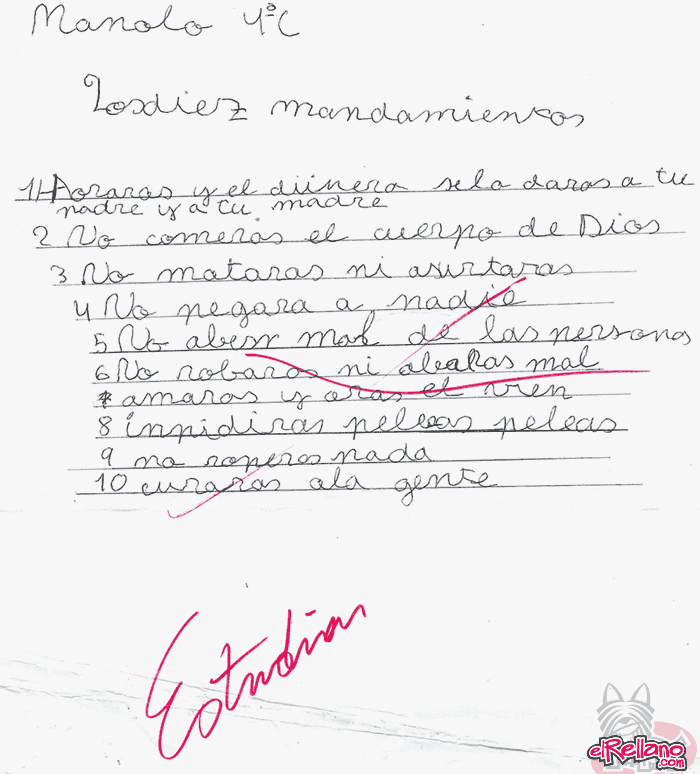 Manolo 4ºC
Losdiez mandamientos
1 Aoraras y el diinera sela daras a tu
padre y a tu madre
2 No comeras el cuerpo de Dios
3 No mataras ni asustaras
4 No pegara a nadie
5 No aberr mal de las personas
6 No robaras ni abalas mal
* amaras y aras el vien
8 inpidiras peleas peleas
9 no roperas nada
10 curaras ala gente
Estudiar
elRellano.com